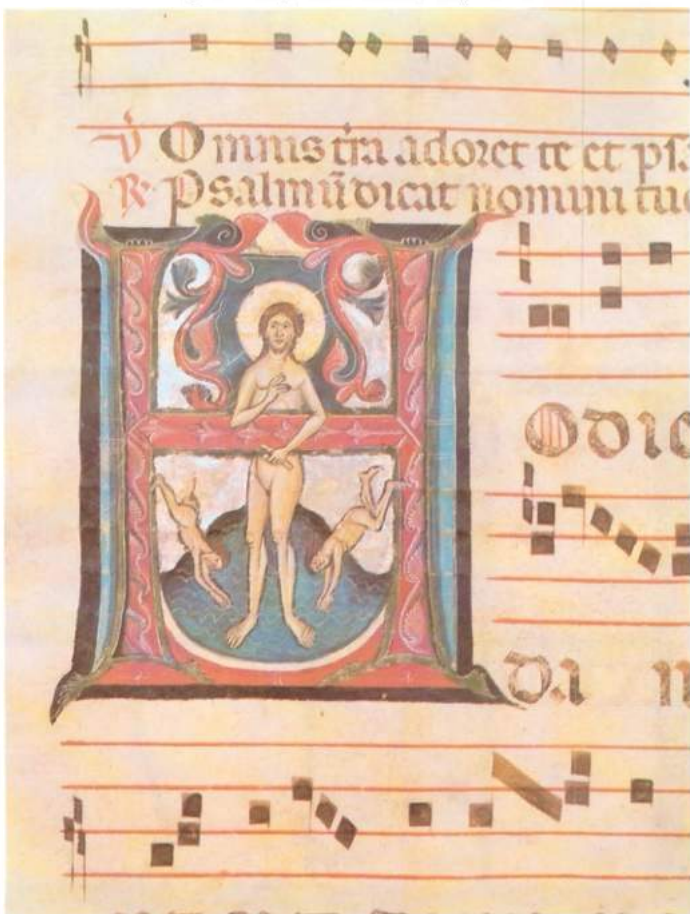 V Omnis tr̄a adoret te et psa
R Psalmū dicat nomini tuo
H
odie
da m